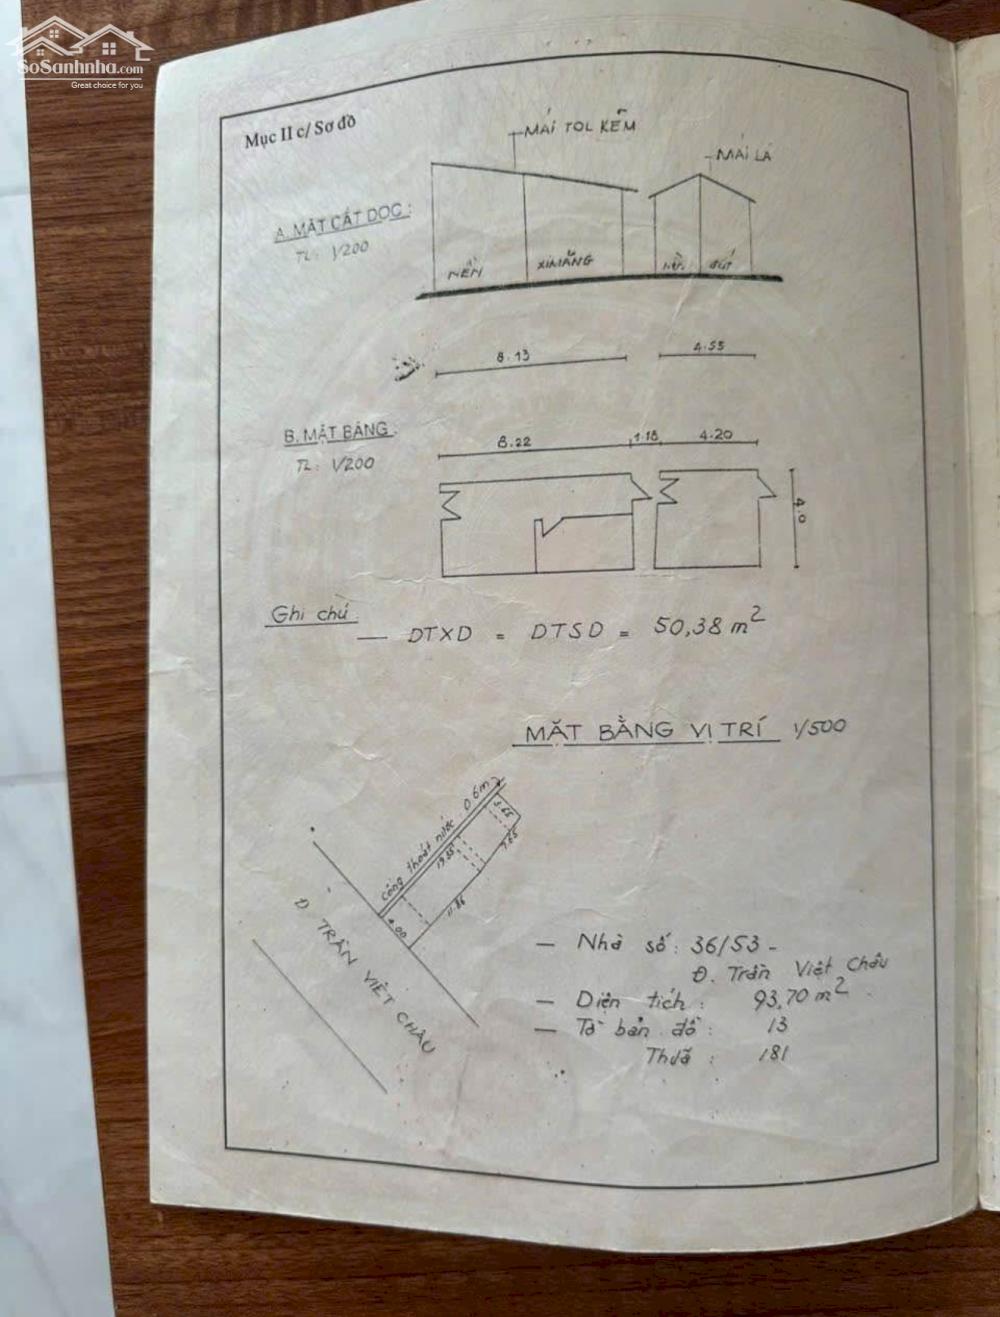 SoSanhnha.com
Great choice for you
Mục II c/ Sơ đồ
MÁI TOL KẼM
MÁI LÁ
A. MẶT CẮT DỌC :
TL : 1/200
NỀN
XIMĂNG
NỀN
ĐẤT
8.13
4.55
B. MẶT BẰNG :
TL : 1/200
8.22
1.18
4.20
4.0
Ghi chú
— DTXD = DTSD = 50,38 m2
MẶT BẰNG VỊ TRÍ 1/500
Cống thoát nước 0.6m
3.65
7.65
19.55
11.86
4.00
Đ TRẦN VIỆT CHÂU
— Nhà số : 36/53 -
Đ. Trần Việt Châu
— Diện tích : 93,70 m2
— Tờ bản đồ : 13
Thửa : 181